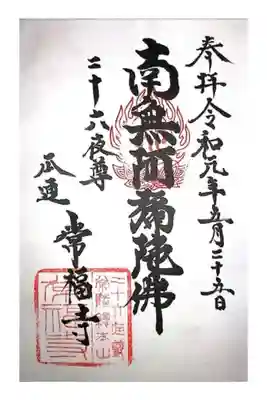 奉拝令和元年五月二十五日
南無阿弥陀佛
二十六夜尊
瓜連
常福寺